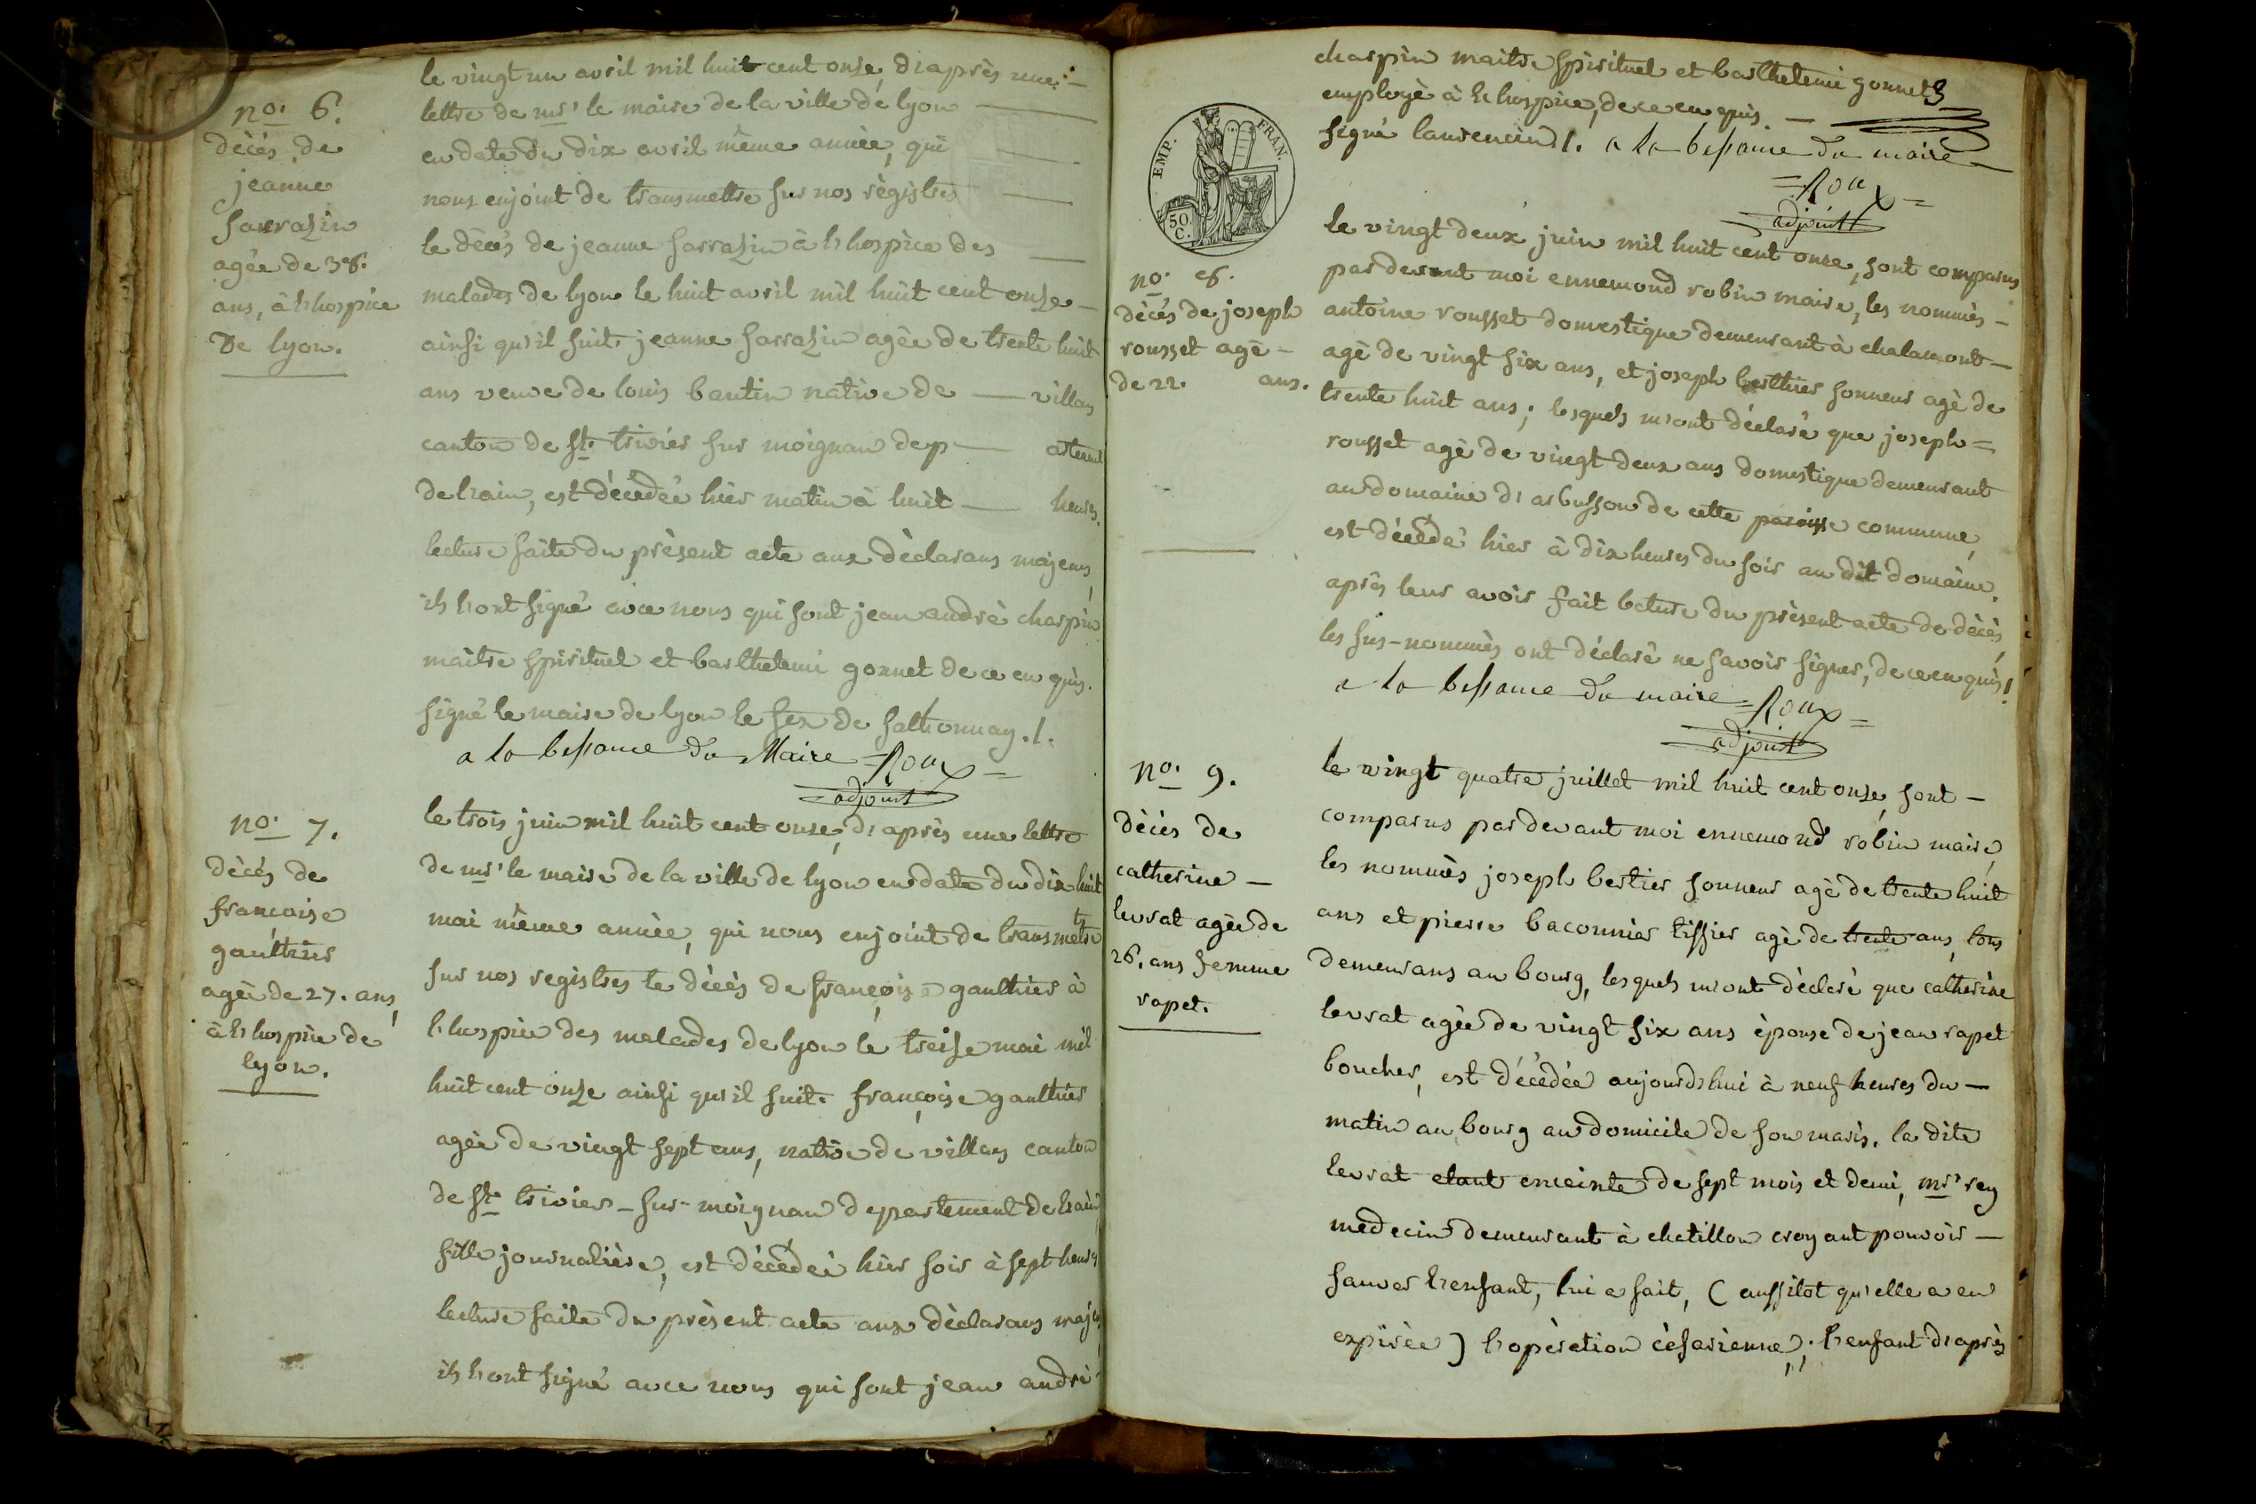 no. 6.
décés de
jeanne
sarrazin
agée de 38.
ans, à l'hospice
De lyon.
le vingt un avril mil huit cent onze, d'après une
lettre de mr. le maire de la ville de lyon
en date du dix avril même année, qui
nous enjoint de transmettre sur nos régistres
le décés de jeanne sarrazin à l'hospice des
malades de lyon le huit avril mil huit cent onze
ainsi qu'il suit. jeanne sarrazin agée de trente huit
ans veuve de louis bantin native de villars
canton de st. trivier sur moignan dep artement
de l'ain, est décédée hier matin à huit heures.
lecture faite du présent acte aux déclarans majeurs,
ils l'ont signé avec nous qui sont jean andré charpin
maitre spirituel et barthelemi gonnet de ce enquis.
signé le maire de lyon le fex de sathonnay./.
a la bessance du Maire Roux
adjoint
no. 7.
décés de
francoise
gaulthier
agée de 27. ans,
à l'hospice de
lyon.
le trois juin mil huit cent onze, d'après une lettre
de mr. le maire de la ville de lyon en date du dix huit
mai même année, qui nous enjoint de transmettre
sur nos registres le décés de françoise gaulthier à
l'hospice des malades de lyon le treise mai mil
huit cent onze ainsi qu'il suit. françoise gaulthier
agée de vingt sept ans, native de villars canton
de st. trivier-sur-moignan departement de l'ain
fille journalière, est décédée hier soir à sept heures
lecture faite du présent acte aux déclarans majeurs
ils l'ont signé avec nous qui sont jean andré
charpin maitre spirituel et barthelemi gonnet
employé à l'hospice, de ce enquis.
signé laurencin /. a la bessance du maire
Roux
adjoint
3
EMP. FRAN.
50
C.
no. 8.
décés de joseph
rousset agé
de 22. ans.
le vingt deux juin mil huit cent onze, sont comparus
pardevant moi ennemond robin maire, les nommés
antoine rousset domestique demeurant à chalamont
agé de vingt six ans, et joseph berthier sonneur agé de
trente huit ans; lesquels m'ont déclaré que joseph
rousset agé de vingt deux ans domestique demeurant
au domaine d'arbusson de cette paroisse commune,
est décédé hier à dix heures du soir au dit domaine.
après leur avoir fait lecture du présent acte de décés,
les sus-nommés ont déclaré ne savoir signer, de ce enquis /
a la bessance du maire Roux
adjoint
no. 9.
décés de
catherine
levrat agée de
26. ans femme
rapet.
le vingt quatre juillet mil huit cent onze, sont
comparus pardevant moi ennemond robin maire,
les nommés joseph bertier sonneur agé de trente huit
ans et pierre baconnier tissier agé de trente ans, tous
demeurans au bourg, lesquels m'ont déclaré que catherine
levrat agée de vingt six ans épouse de jean rapet
boucher, est décédée aujourd'hui à neuf heures du
matin au bourg au domicile de son maris. la dite
levrat etant enceinte de sept mois et demi, mr. rey
medecin demeurant à chatillon croyant pouvoir
sauver l'enfant, lui a fait, (aussitot qu'elle a eu
expirée) l'opération césarienne; l'enfant d'après